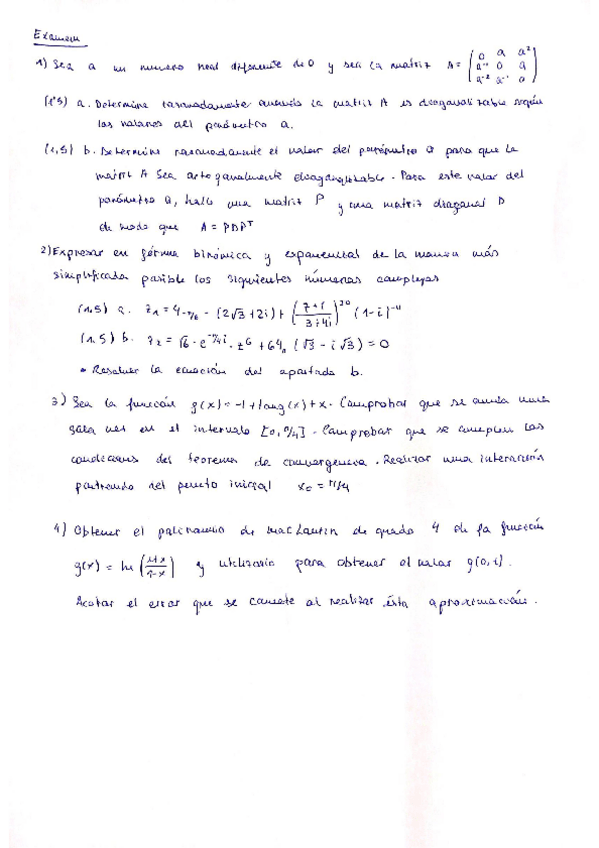 Examen
1) Sea a un numero real diferente de 0 y sea la matriz A = (0 a a² / a⁻¹ 0 a / a⁻² a⁻¹ 0)
(1'5) a. Determine razonadamente cuando la matriz A es diagonalizable según
los valores del parámetro a.
(1,5) b. Determine razonadamente el valor del parámetro a para que la
matriz A sea ortogonalmente diagonalizable. Para este valor del
parámetro a, halle una matriz P y una matriz diagonal D
de modo que A = PDPᵀ
2) Expresar en forma binómica y exponencial de la manera más
simplificada posible los siguientes números complejos
(1,5) a. z₁ = 4-π/6 - (2√3 + 2i) + (7+i / 3+4i)²⁰ (1-i)⁻⁴
(1,5) b. z₂ = √6 · e^-π/4 i · z⁶ + 64 (√3 - i√3) = 0
• Resolver la ecuación del apartado b.
3) Sea la función g(x) = -1 + tang(x) + x. Comprobar que se anula una
sola vez en el intervalo [0, π/4]. Comprobar que se cumplen las
condiciones del teorema de convergencia. Realizar una interacción
partiendo del punto inicial x₀ = π/4
4) Obtener el polinomio de MacLaurin de grado 4 de la función
g(x) = ln (1+x / 1-x) y utilizarlo para obtener el valor g(0,1).
Acotar el error que se comete al realizar ésta aproximación.